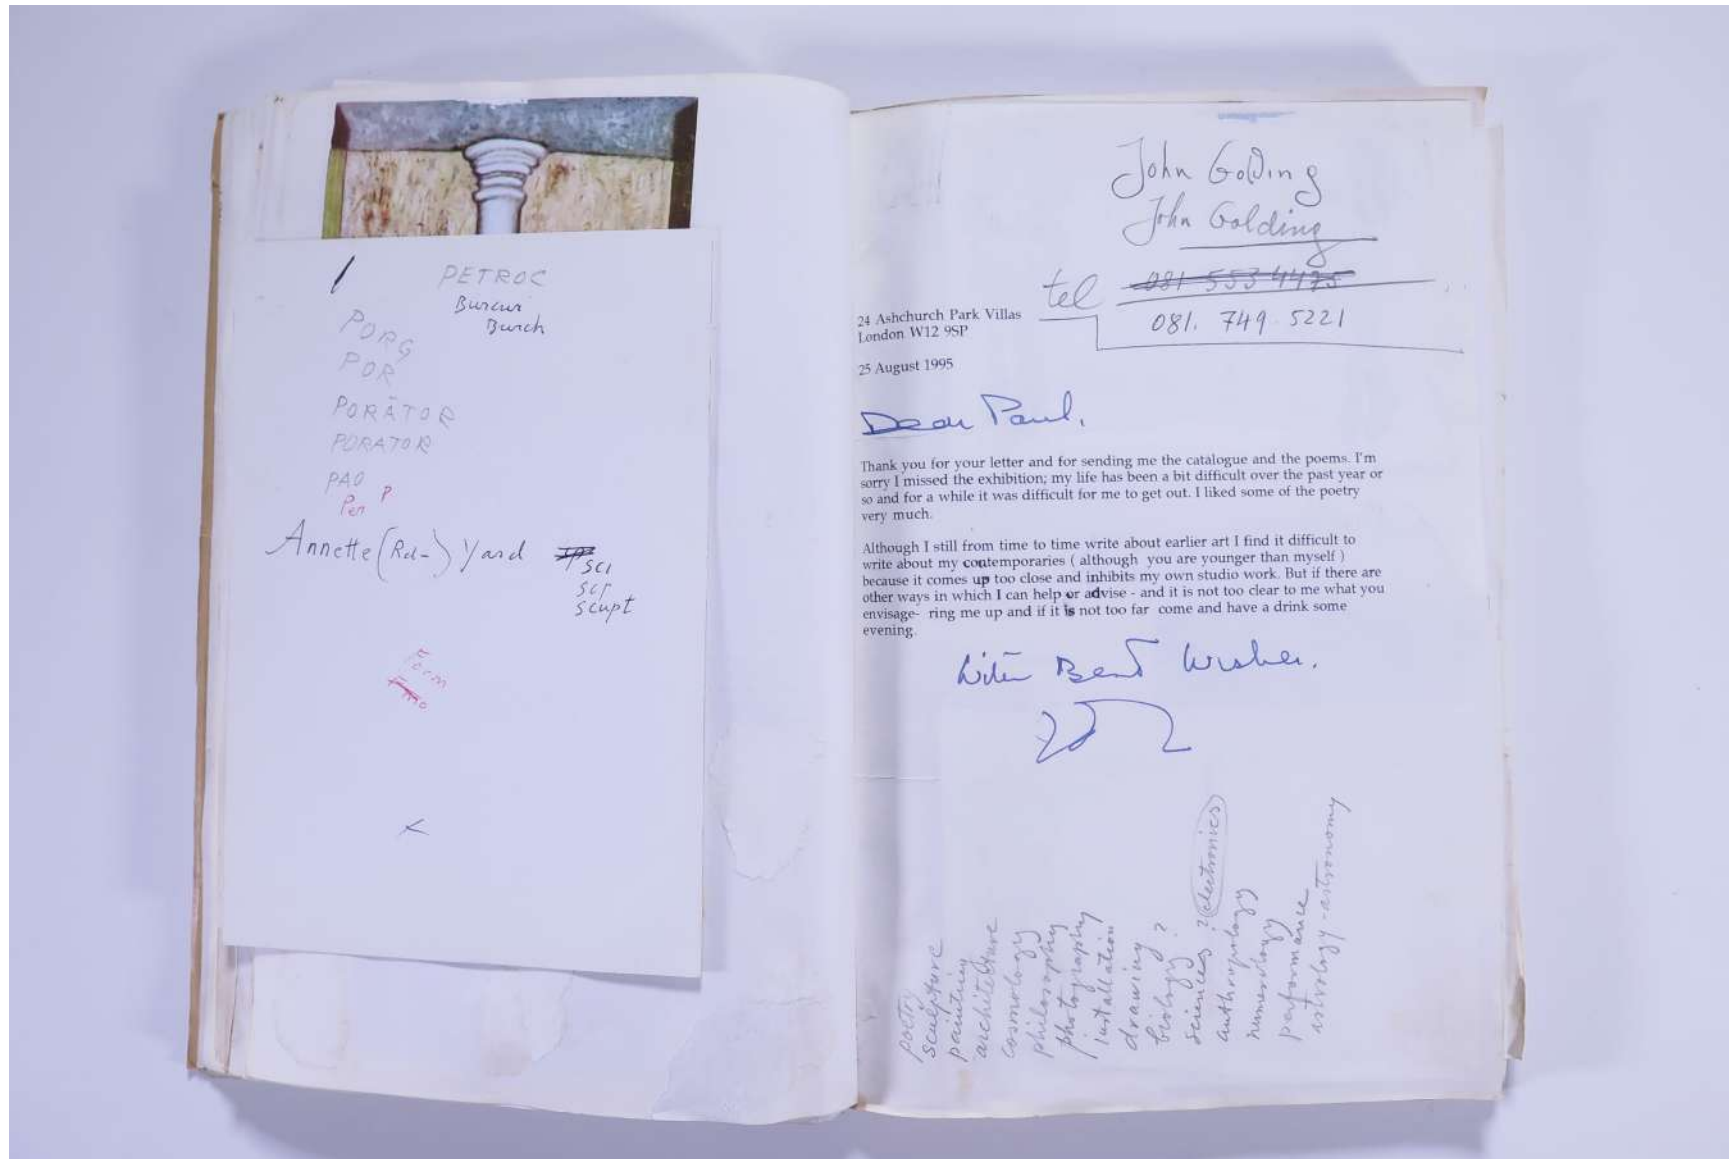 PETROC
Burcur
Burch
PORG
POR
PORĀTOR
PORATOR
PAO
Pen P
Annette (Rd-) Yard
sci
scr
scupt
Form
John Golding
John Golding
tel 081 553 4475
081. 749. 5221
24 Ashchurch Park Villas
London W12 9SP
25 August 1995
Dear Paul,
Thank you for your letter and for sending me the catalogue and the poems. I'm
sorry I missed the exhibition; my life has been a bit difficult over the past year or
so and for a while it was difficult for me to get out. I liked some of the poetry
very much.
Although I still from time to time write about earlier art I find it difficult to
write about my contemporaries ( although you are younger than myself )
because it comes up too close and inhibits my own studio work. But if there are
other ways in which I can help or advise - and it is not too clear to me what you
envisage- ring me up and if it is not too far come and have a drink some
evening.
With Best Wishes.
poetry
sculpture
painting
architecture
cosmology
philosophy
photography
installation
drawing
biology ?
sciences ? electronics
anthropology
numerology
performance
astrology - astronomy